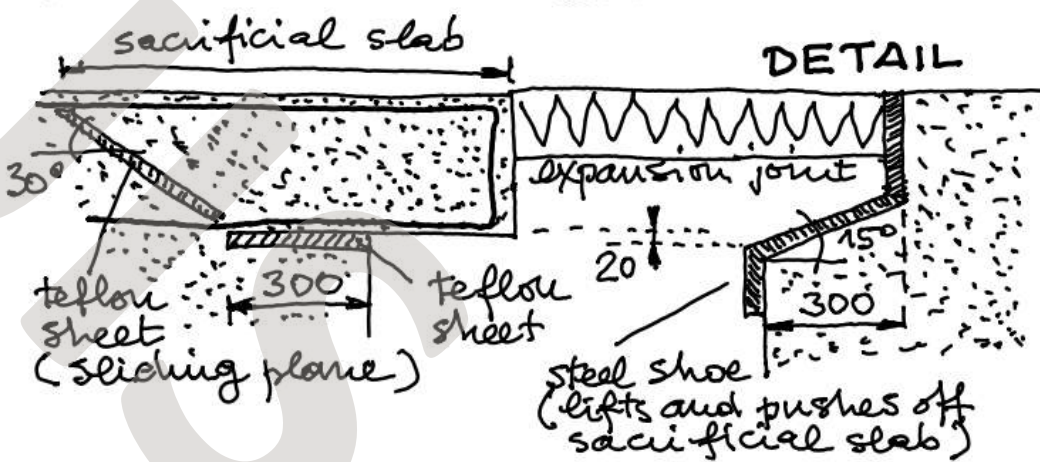 sacrificial slab
DETAIL
30°
expansion joint
15°
20
300
300
teflon
sheet
(sliding plane)
teflon
sheet
steel shoe
(lifts and pushes off
sacrificial slab)